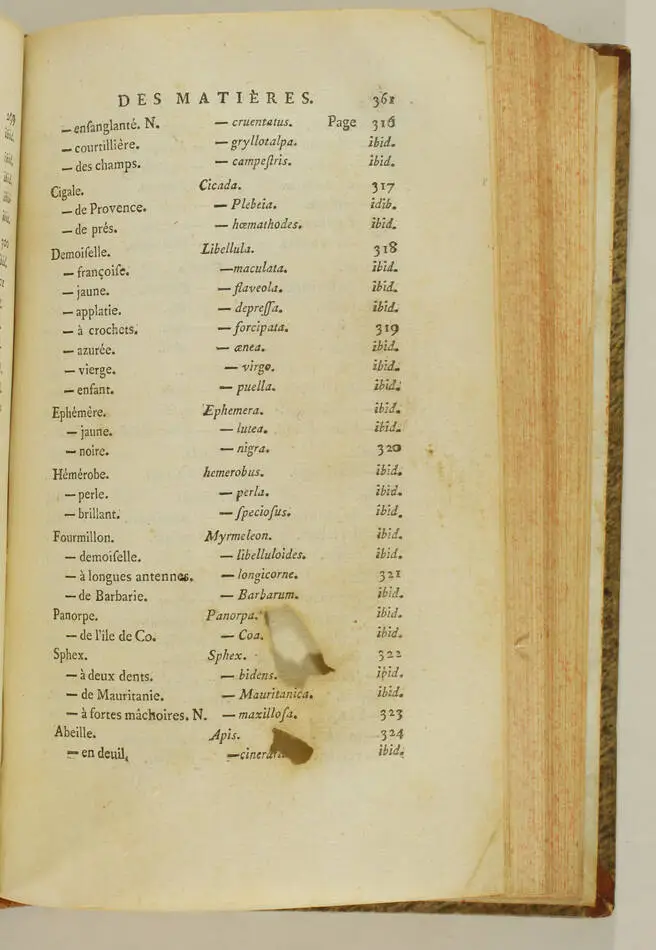 DES MATIÈRES. 361
— enſanglanté. N. — cruentatus. Page 316
— courtillière. — gryllotalpa. ibid.
— des champs. — campeſtris. ibid.
Cigale. Cicada. 317
— de Provence. — Plebeia. idib.
— de prés. — hœmathodes. ibid.
Demoiſelle. Libellula. 318
— françoiſe. — maculata. ibid.
— jaune. — flaveola. ibid.
— applatie. — depreſſa. ibid.
— à crochets. — forcipata. 319
— azurée. — ænea. ibid.
— vierge. — virgo. ibid.
— enfant. — puella. ibid.
Ephémère. Ephemera. ibid.
— jaune. — lutea. ibid.
— noire. — nigra. 320
Hémérobe. hemerobus. ibid.
— perle. — perla. ibid.
— brillant. — ſpecioſus. ibid.
Fourmillon. Myrmeleon. ibid.
— demoiſelle. — libelluloides. ibid.
— à longues antennes. — longicorne. 321
— de Barbarie. — Barbarum. ibid.
Panorpe. Panorpa. ibid.
— de l'île de Co. — Coa. ibid.
Sphex. Sphex. 322
— à deux dents. — bidens. ibid.
— de Mauritanie. — Mauritanica. ibid.
— à fortes mâchoires. N. — maxilloſa. 323
Abeille. Apis. 324
— en deuil. ibid.